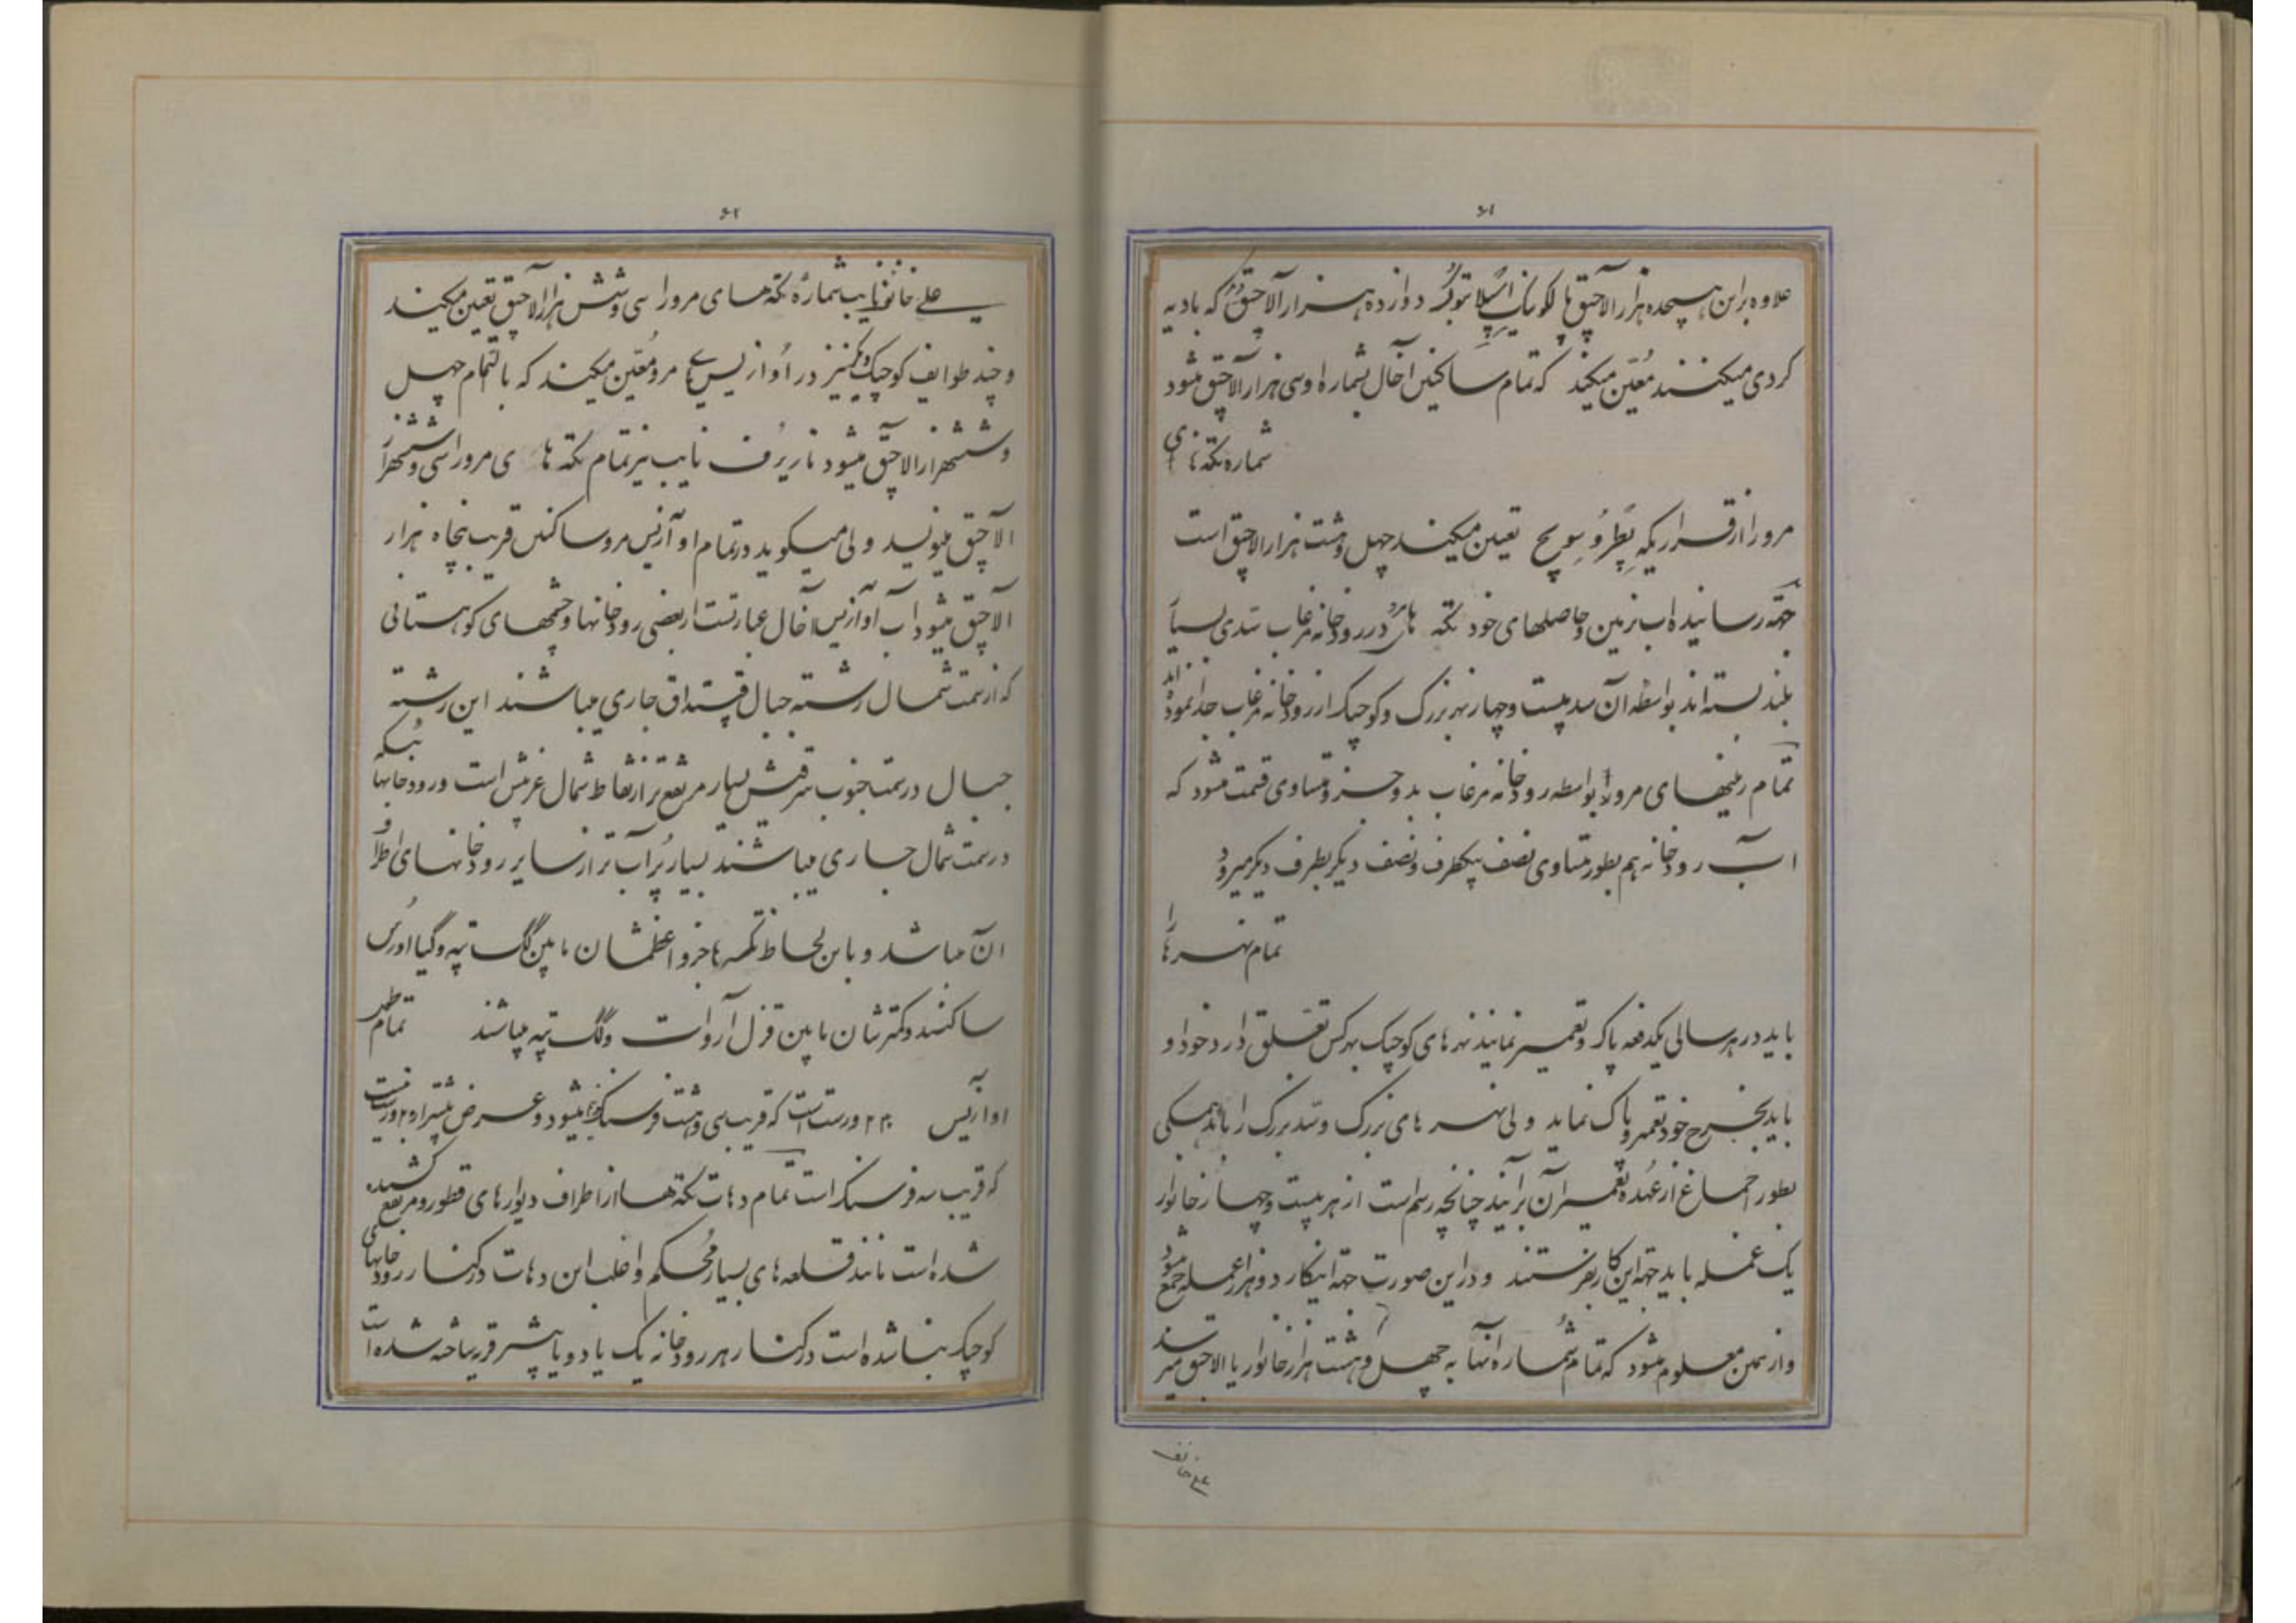 ۶۱
علاوه براین هیجده هزار الاچیق پالکونیک دوازده هزار آلاچیق دیگر که بادیه
کردی میکنند مُعیّن میکند که تمام ساکنین آخال بشماره او سی هزار آلاچیق میشود
شماره تکّه های
مرو را از قراریکه پطروسویچ تعیین میکند چهل وهشت هزار الاچیق است
جهّة رسانیدن اب بزمین وحاصلهای خود تکّه های مرو در رودخانه مرغاب سدّی بسیار
بلند بسته اند بواسطه آن سد بیست وچهار نهر بزرک وکوچک از رودخانه مرغاب جدا نموده اند
تمام زمینهای مرو بواسطه رودخانه مرغاب بدو جزو متساوی قسمت میشود که
اب رودخانه هم بطور متساوی نصف بیکطرف ونصف دیکر بطرف دیکر میرود
تمام نهرها را
باید در هر سالی یکدفعه پاک وتعمیر نمایند نهرهای کوچک بهرکس تعلق دارد خود او
باید بخرج خود تعمیر و پاک نماید ولی نهر های بزرک وسدّ بزرک را باید همکی
بطور اجماع از عُهده تعمیر آن برآیند چنانچه رسم است از هر بیست وچهار خانوار
یک عمله باید جهة این کار بفرستند ودراین صورت جهة اینکار دو هزار عمله جمع میشود
واز همین معلوم میشود که تمام شماره آنها به چهل وهشت هزار خانوار یا الاچیق میرسد
علی خانف
۶۲
علی خانف نایب شماره تکّه های مرو را سی وشش هزار آلاچیق تعیین میکند
وچند طوایف کوچک دیگر نیز در اُوازیس مرو مُعیّن میکند که بالتّمام چهل
وششهزار الاچیق میشود نازیرُف نایب نیز تمام تکّه های مرو را سی وششهزار
الاچیق مینویسد ولی میکوید در تمام اوآزیس مرو ساکنین قریب پنجاه هزار
الاچیق میشود آب اوآزیس آخال عبارتست از بعضی رودخانها وچشمهای کوهستانی
که از سمت شمال رشته جبال قپتداق جاری میباشند این رشته
جبال درسمت جنوب شرقیش بسیار مرتفع تر از نقاط شمال غربیش است ورودخانهائیکه
درسمت شمال جاری میباشند بسیار پُرآب تر از سایر رودخانهای اطراف
آن میباشد وباین لحاظ تکّه ها جزو اعظمشان مابین کک تپه وکیااورس
ساکنند وکمترشان مابین قزل آروات وکک تپه میباشند تمام طول
اوازیس ۲۳۰ ورست است که قریب سی وهشت فرسنک میشود وعرض بیشتر از ۲۰ ورست نیست
که قریب سه فرسنک است تمام دهات تکّه ها از اطراف دیوارهای قطور ومرتفع کشیده
شده است مانند قلعه های بسیار مُحکم واغلب این دهات درکنار رودخانهای
کوچک بنا شده است درکنار هر رودخانه یک یا دو یا بیشتر قریه ساخته شده است